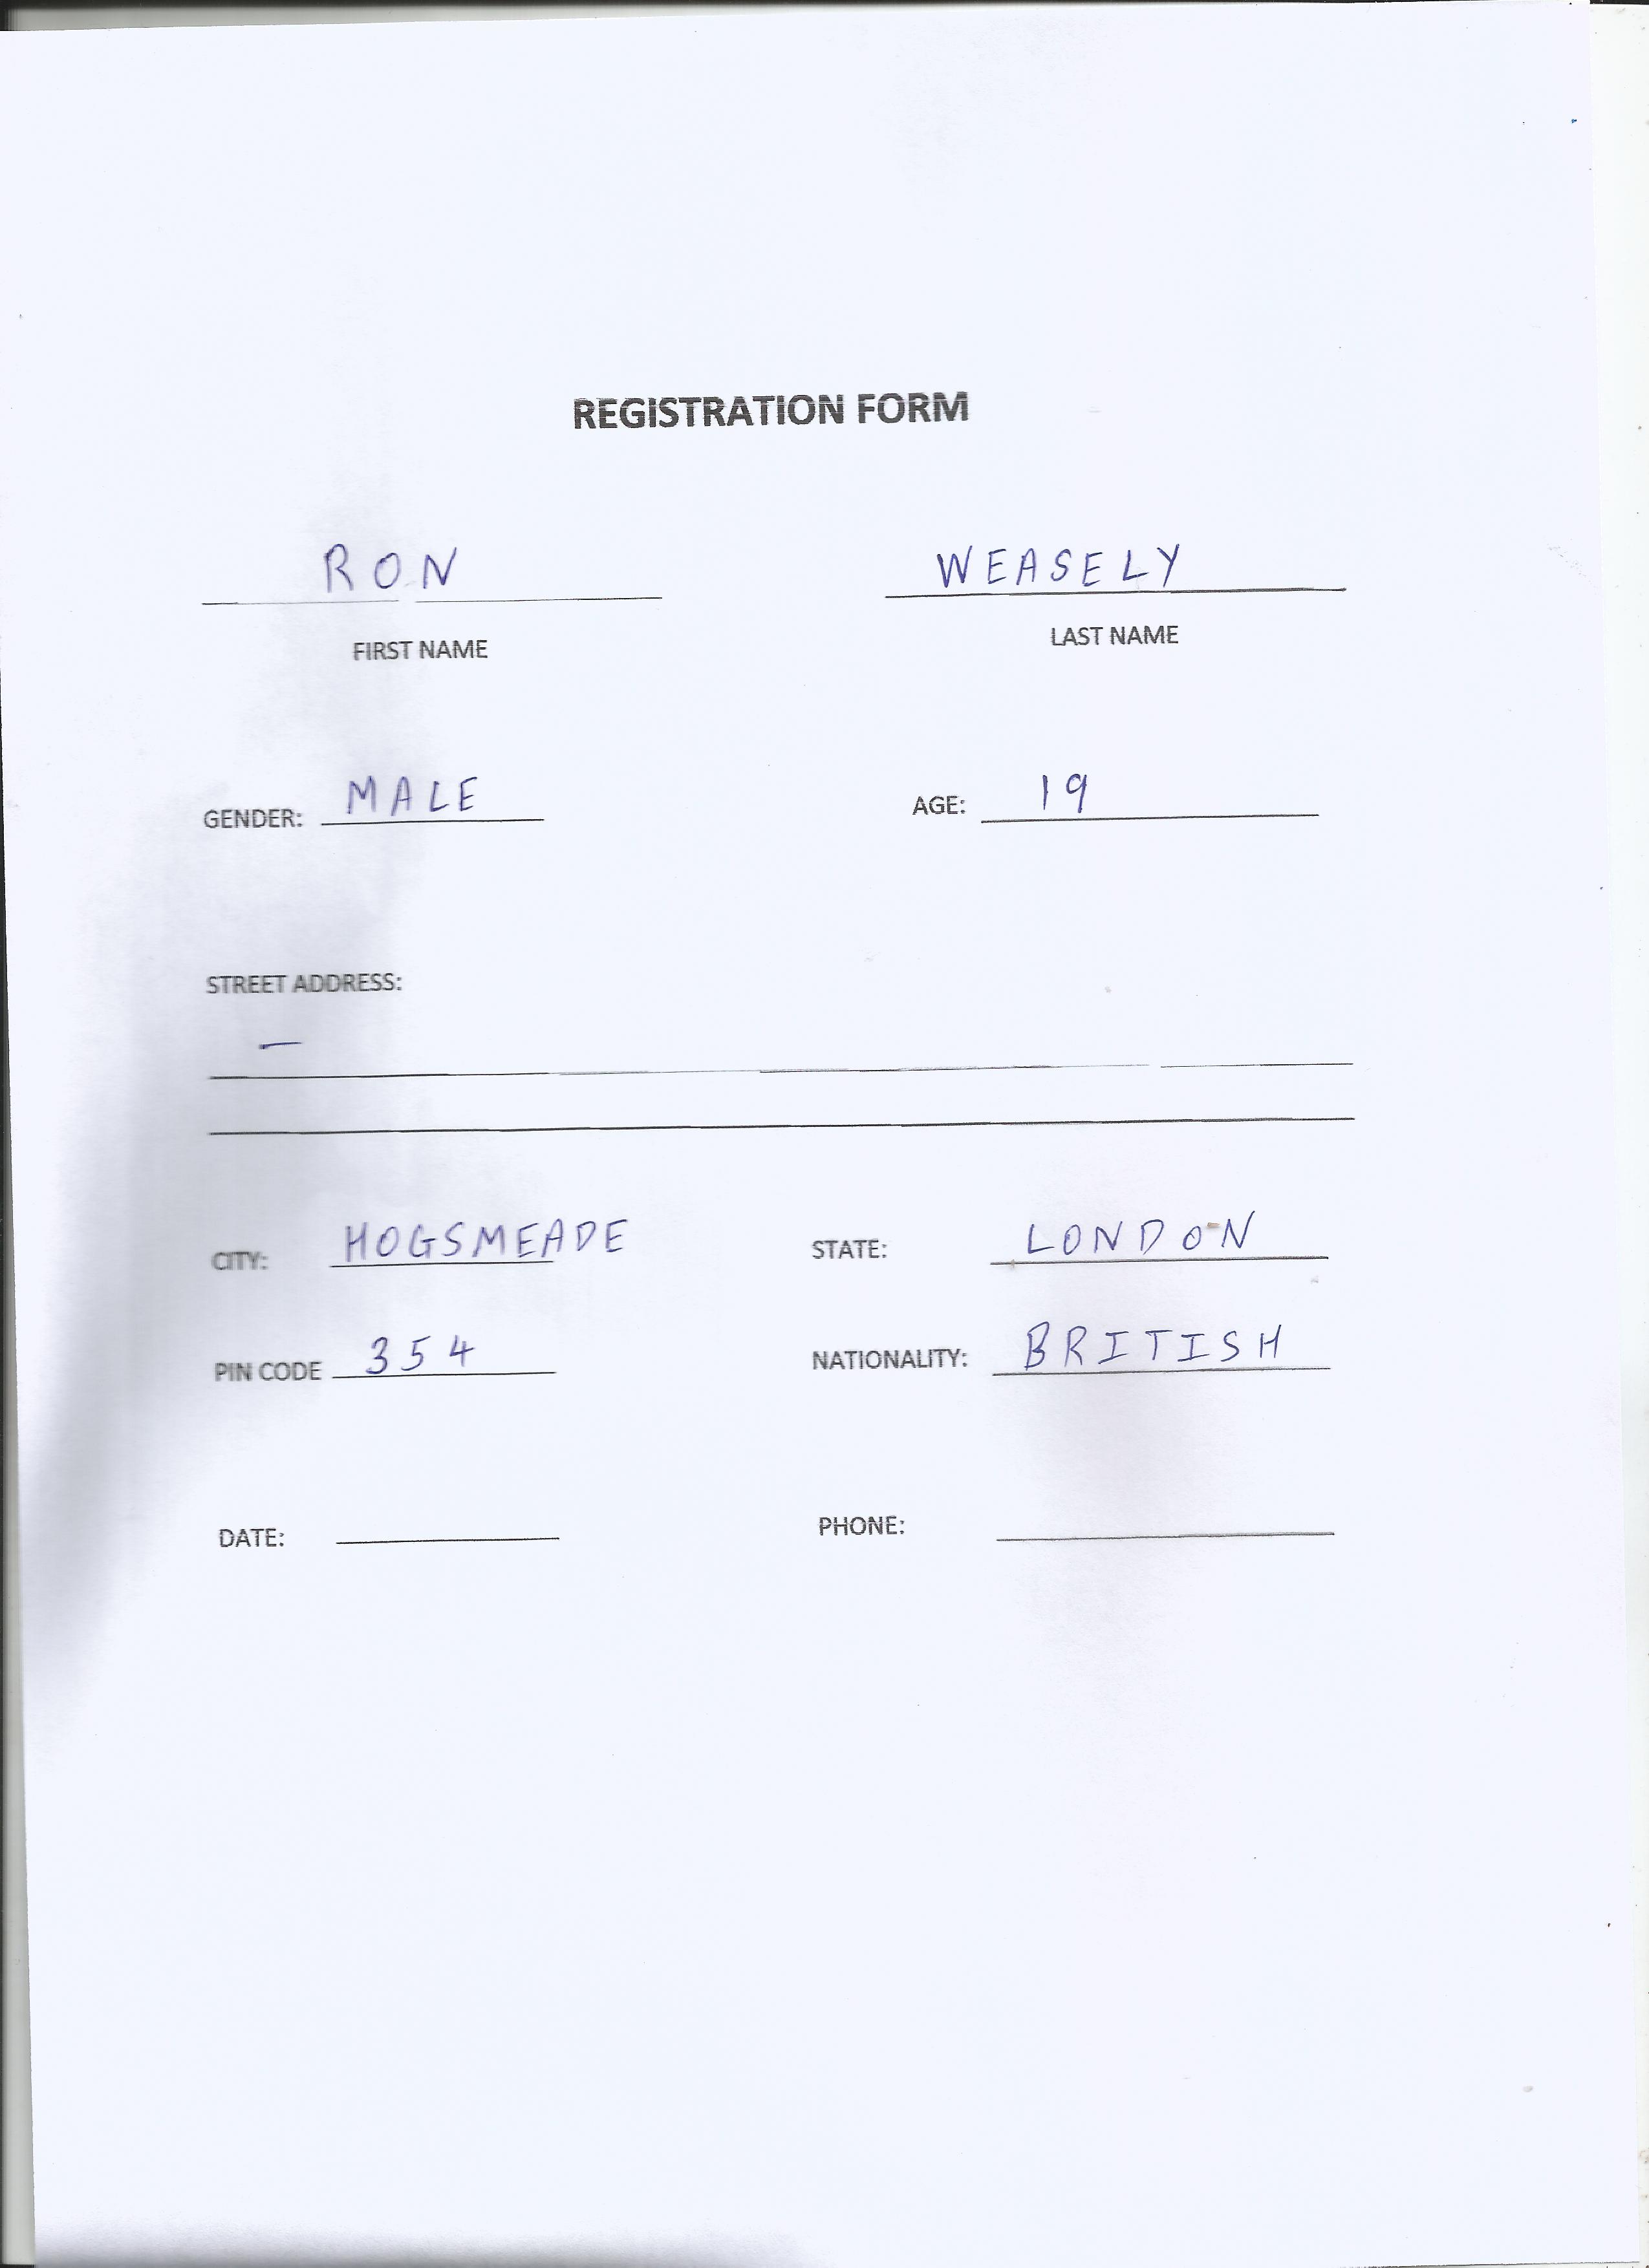 REGISTRATION FORM
RON WEASELY
FIRST NAME LAST NAME
GENDER: MALE AGE: 19
STREET ADDRESS:
—
CITY: HOGSMEADE STATE: LONDON
PIN CODE 354 NATIONALITY: BRITISH
DATE: PHONE: